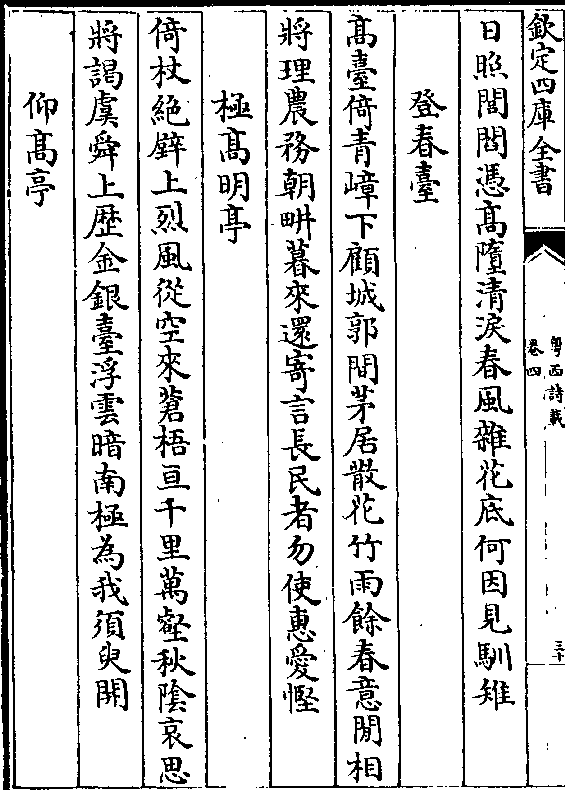 欽定四庫全書
粤西詩載
卷四
三十
日照閭閻憑髙墮清淚春風雜花底何因見馴雉
登春臺
髙臺倚青嶂下顧城郭間茅居散花竹雨餘春意閒相
將理農務朝畊暮來還寄言長民者勿使惠愛慳
極髙明亭
倚杖絶壁上烈風從空來蒼梧亘千里萬壑秋隂哀思
將謁虞舜上歴金銀臺浮雲暗南極為我須臾開
仰髙亭